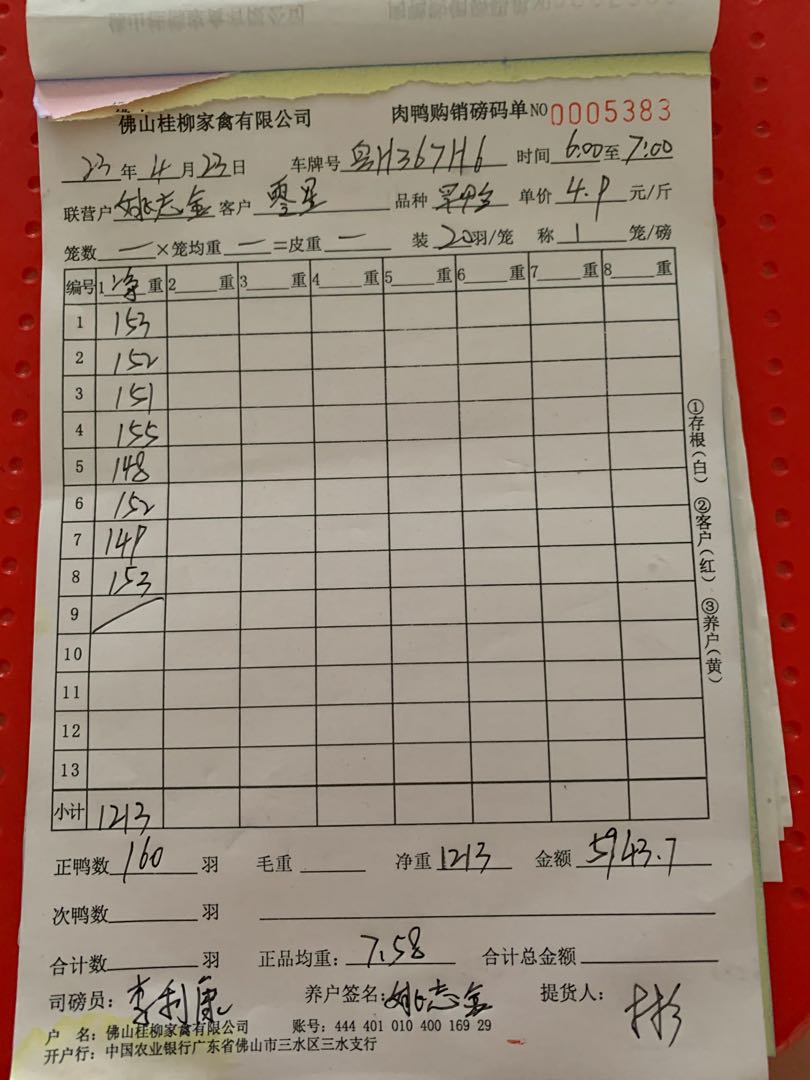 佛山桂柳家禽有限公司 肉鸭购销磅码单NO 0005383
23年4月23日 车牌号 粤H367H6 时间 6:00至7:00
联营户 姚志金 客户 零星 品种 单价 4.9 元/斤
笼数 一 ×笼均重 一 =皮重 一 装 20羽/笼 称 1 笼/磅
编号 1 净 重 2 重 3 重 4 重 5 重 6 重 7 重 8 重
1 153
2 152
3 151
4 155
5 148
6 152
7 149
8 153
9
10
11
12
13
小计 1213
①存根(白) ②客户(红) ③养户(黄)
正鸭数 160 羽 毛重 净重 1213 金额 5943.7
次鸭数 羽
合计数 羽 正品均重: 7.58 合计总金额
司磅员: 李利康 养户签名: 姚志金 提货人:
户 名: 佛山桂柳家禽有限公司 账号: 444 401 010 400 169 29
开户行: 中国农业银行广东省佛山市三水区三水支行